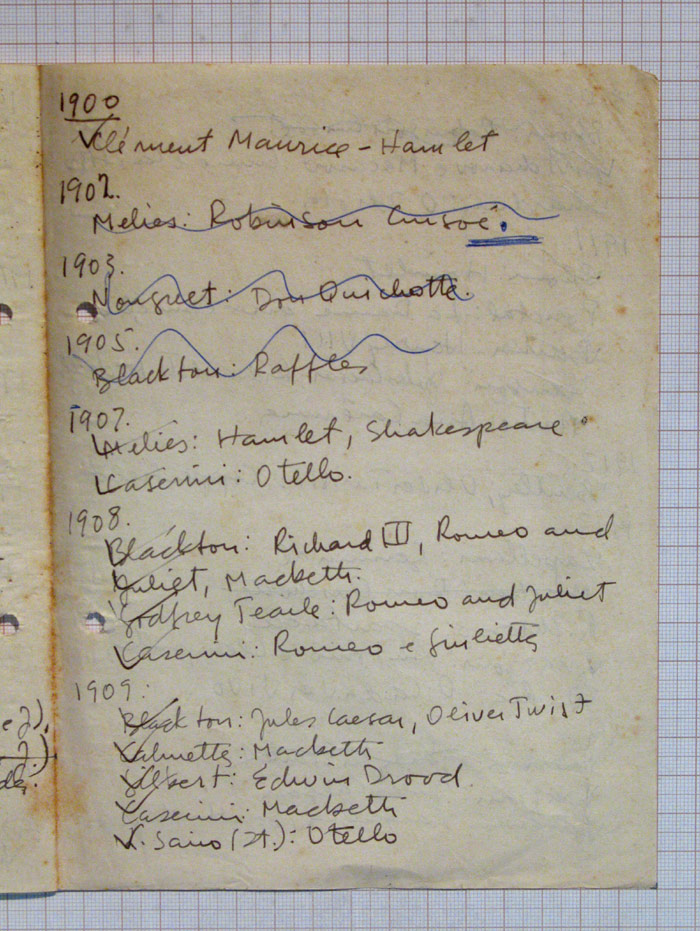 1900
Clément Maurice - Hamlet
1902.
Melies: Robinson Crusoé.
1903.
Nonguet: Don Quichotte.
1905.
Blackton: Raffles
1907.
Meliés: Hamlet, Shakespeare
Caserini: Otello.
1908.
Blackton: Richard III, Romeo and
Juliet, Macbeth.
Godfrey Tearle: Romeo and Juliet
Caserini: Romeo e Giulietta
1909:
Blackton: Jules Caesar, Oliver Twist
Calmettes: Macbeth
Gilbert: Edwin Drood.
Caserini: Macbeth
(It.): Otello
e J).